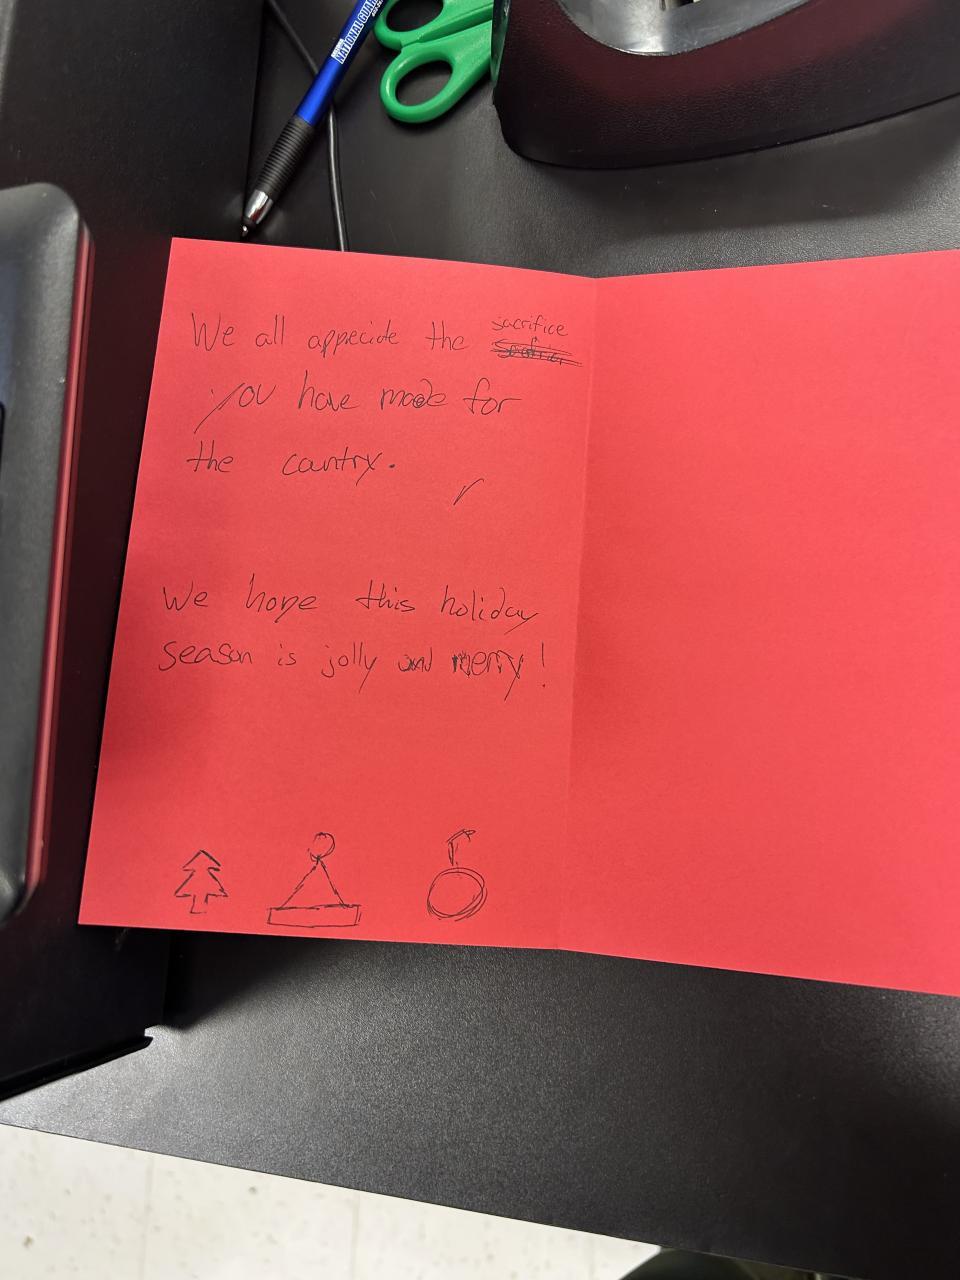 NATIONAL GUA
We all appeciate the sacrifice
you have made for
the country.
We hope this holiday
season is jolly and merry!